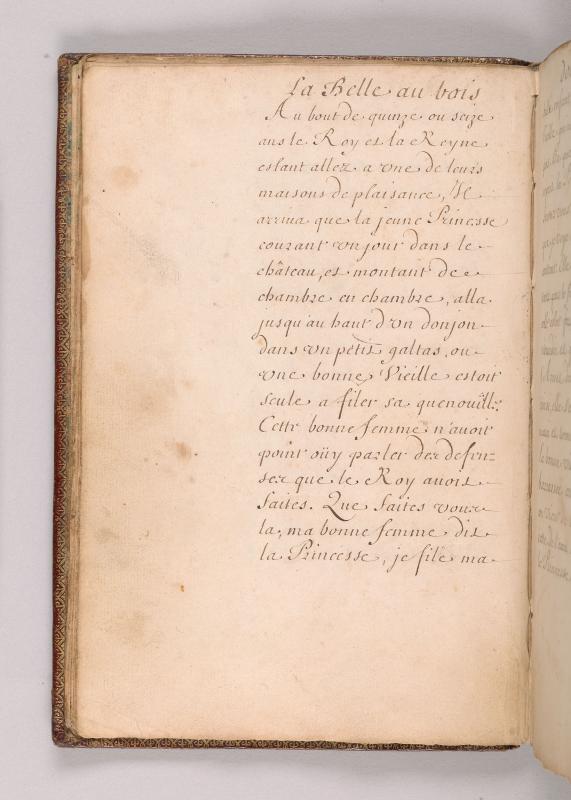 La Belle au bois
Au bout de quinze ou seize
ans le Roy et la Reyne
estant allez a vne de leurs
maisons de plaisance, Il
arriua que la jeune Princesse
courant vn jour dans le
château, et montant de
chambre en chambre, alla
jusqu'au haut d'vn donjon
dans vn petit galtas, ou
vne bonne Vieille estoit
seule a filer sa quenoüille.
Cette bonne femme n'auoit
point oüy parler des defen=
ses que le Roy auoit
faites. Que faites vous
la, ma bonne femme dit
la Princesse, je file ma